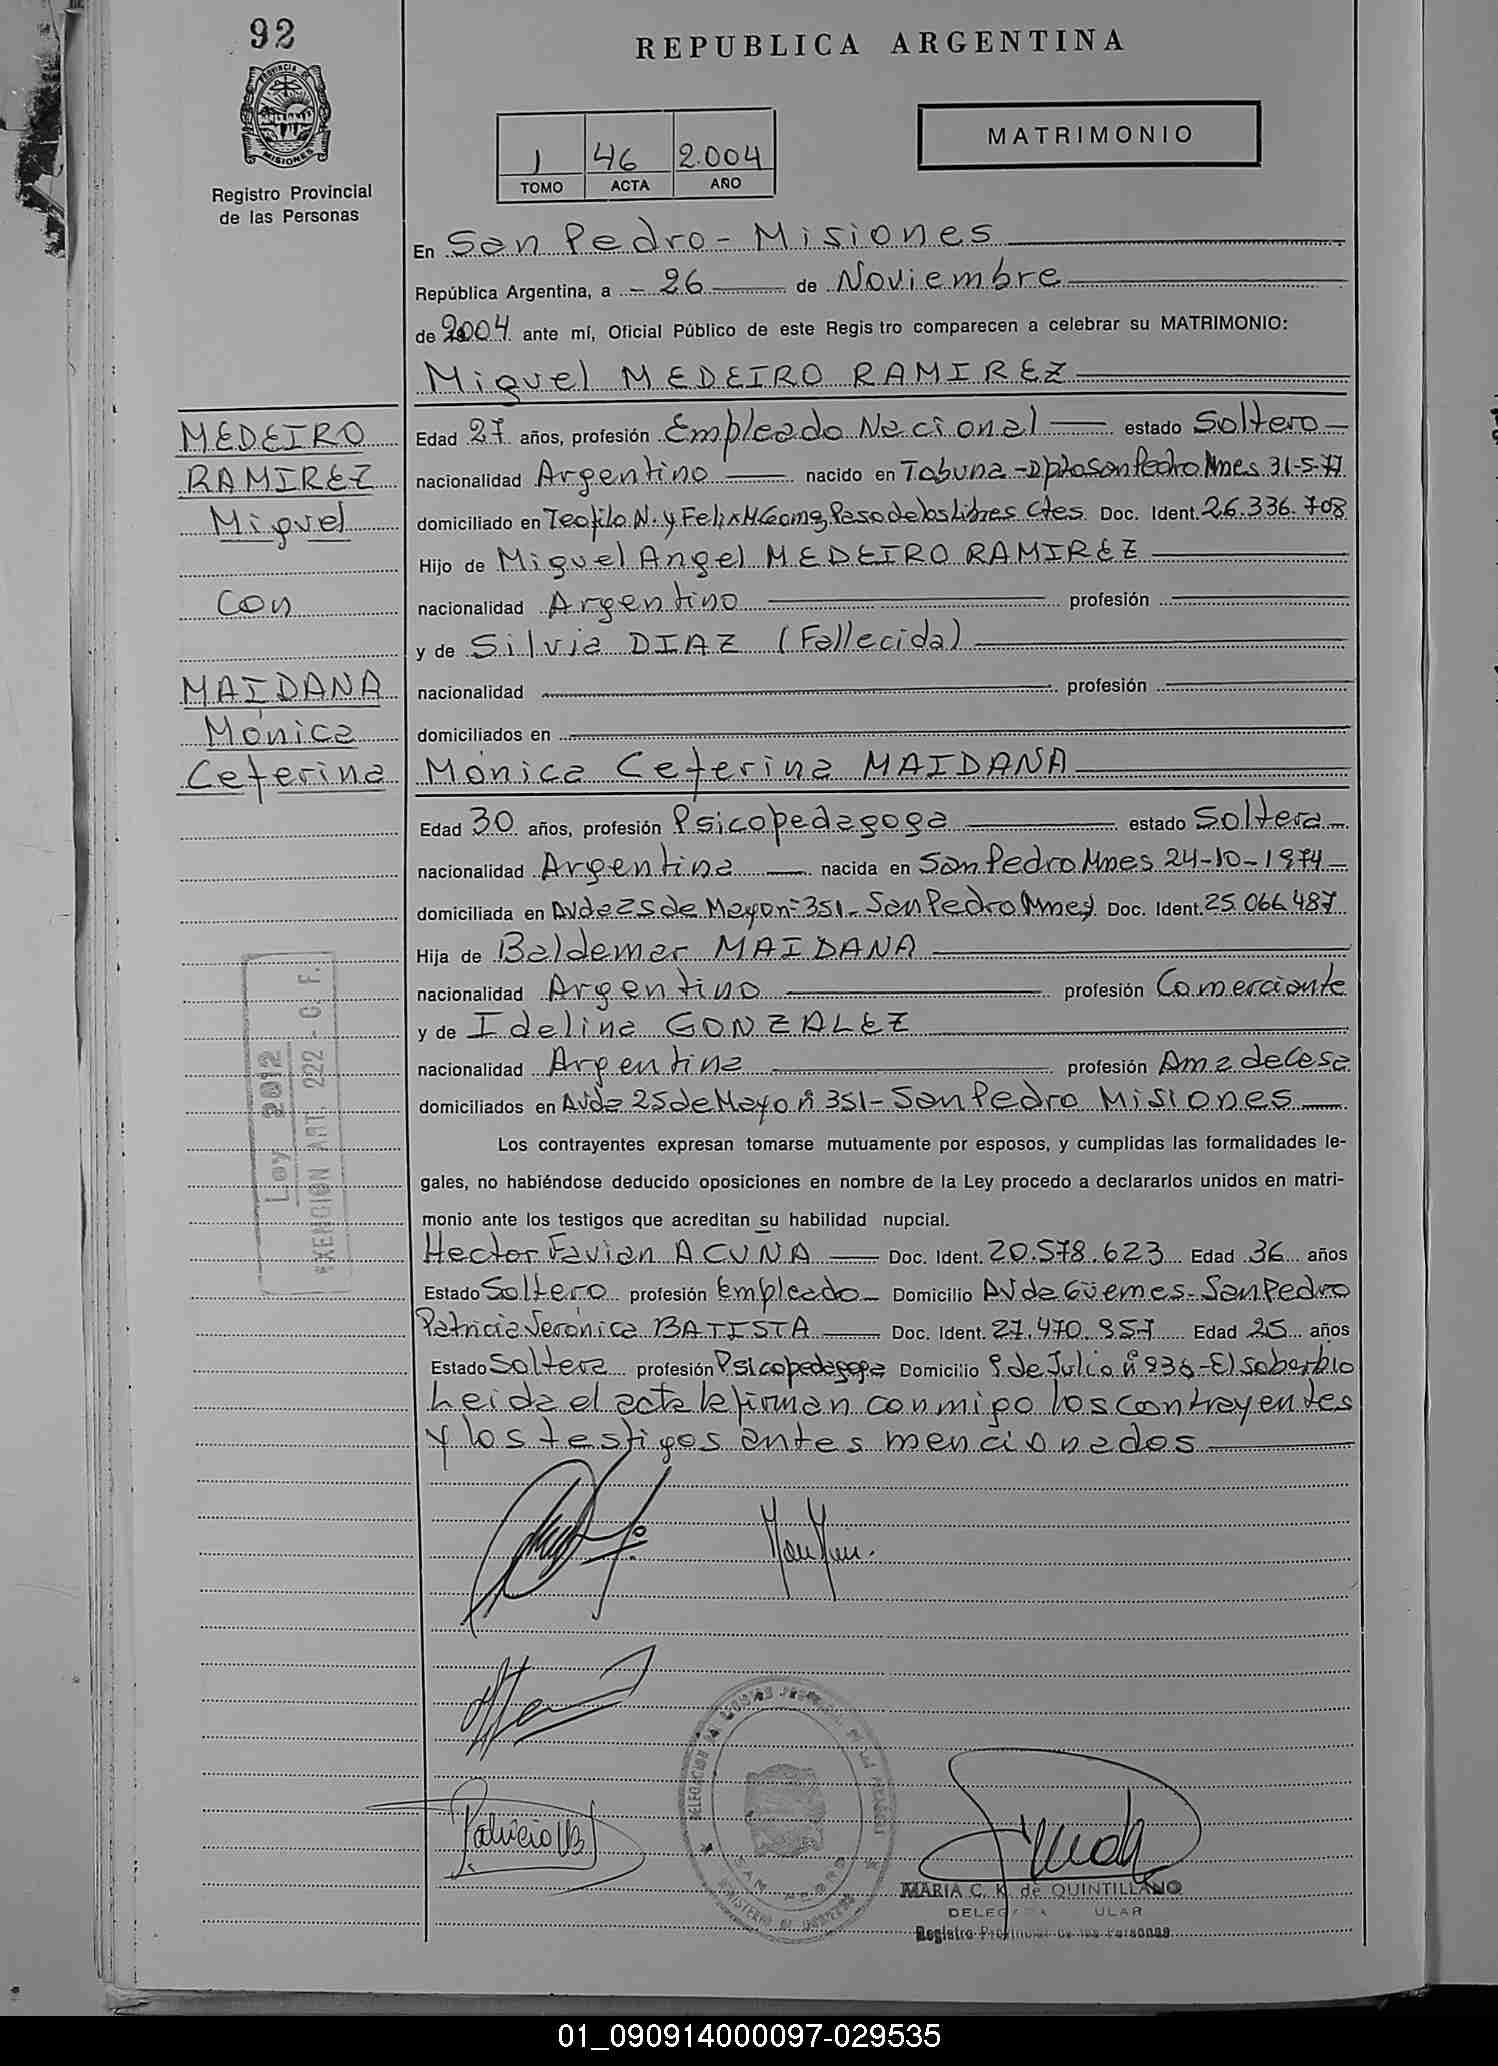 92
REPUBLICA ARGENTINA
PROVINCIA DE
MISIONES
Registro Provincial
de las Personas
1 46 2.004
TOMO ACTA AÑO
MATRIMONIO
En San Pedro - Misiones
República Argentina, a - 26 de Noviembre
de 2004 ante mí, Oficial Público de este Regis tro comparecen a celebrar su MATRIMONIO:
Miguel MEDEIRO RAMIREZ
MEDEIRO
RAMIREZ
Miguel
con
MAIDANA
Mónica
Ceferina
Edad 27 años, profesión Empleado Nacional estado Soltero
nacionalidad Argentino nacido en Tobuna - Dpto San Pedro Mnes 31-5-77
domiciliado en Teofilo N. y Felix M Gomez Paso de los Libres Ctes. Doc. Ident. 26.336.708
Hijo de Miguel Angel MEDEIRO RAMIREZ
nacionalidad Argentino profesión
y de Silvia DIAZ (Fallecida)
nacionalidad profesión
domiciliados en
Mónica Ceferina MAIDANA
Edad 30 años, profesión Psicopedagoga estado Soltera
nacionalidad Argentina nacida en San Pedro Mnes 24-10-1974
domiciliada en Avda 25 de Mayo nº 351 - San Pedro Mnes Doc. Ident. 25.066.487
Hija de Baldemar MAIDANA
nacionalidad Argentino profesión Comerciante
y de Idelina GONZALEZ
nacionalidad Argentina profesión Ama de Casa
domiciliados en Avda 25 de Mayo nº 351 - San Pedro Misiones
Ley 2012
EXENCION ART. 222 - C. F.
Los contrayentes expresan tomarse mutuamente por esposos, y cumplidas las formalidades le-
gales, no habiéndose deducido oposiciones en nombre de la Ley procedo a declararlos unidos en matri-
monio ante los testigos que acreditan su habilidad nupcial.
Hector Favian ACUÑA Doc. Ident. 20.578.623 Edad 36 años
Estado Soltero profesión Empleado Domicilio Avda Güemes - San Pedro
Patricia Verónica BATISTA Doc. Ident. 27.470.957 Edad 25 años
Estado Soltera profesión Psicopedagoga Domicilio 9 de Julio nº 936 - El Soberbio
Leida el acta la firman conmigo los contrayentes
y los testigos antes mencionados
Patricia VB
SAN PEDRO
MARIA C. K. de QUINTILLANO
Registro Provincial de las Personas
01_090914000097-029535